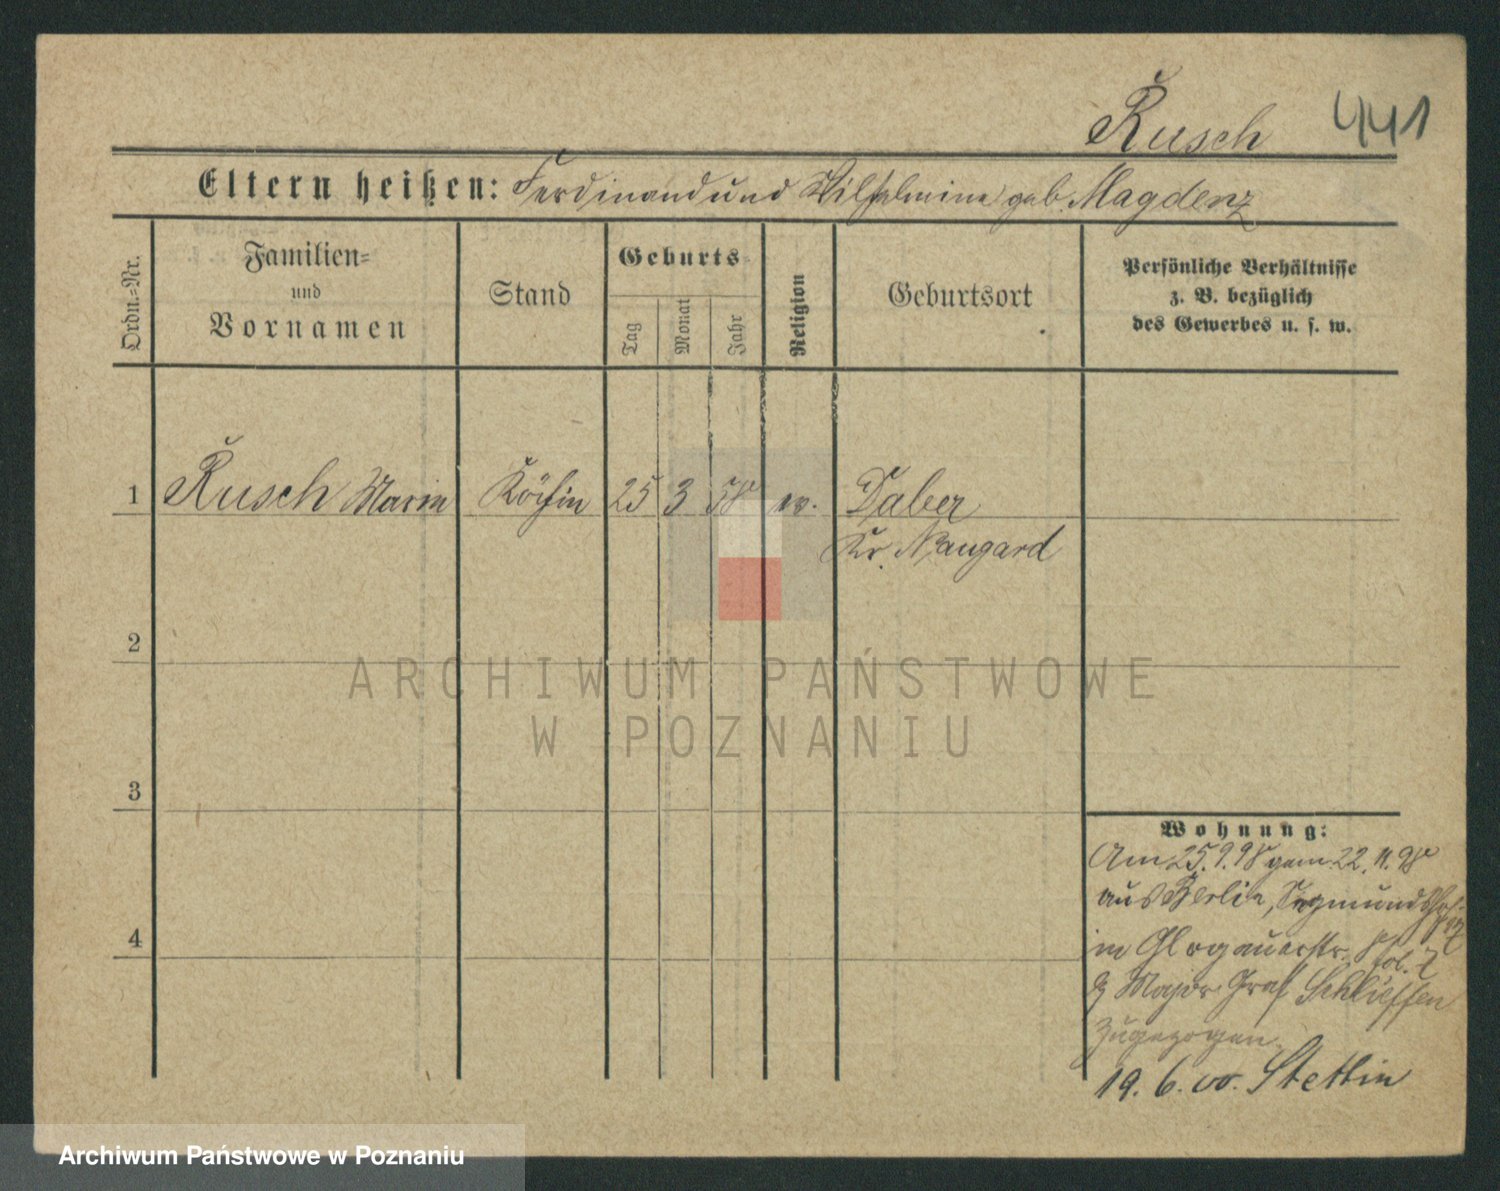 Rusch 441
Eltern heißen: Ferdinand und Wilhelmine geb. Magdenz
Ordn.=Nr.
Familien=
und
Vornamen
Stand
Geburts
Tag
Monat
Jahr
Religion
Geburtsort
Persönliche Verhältnisse
z. B. bezüglich
des Gewerbes u. s. w.
1 Rusch Marie Köchin 25 3 58 ev. Daber
Kr. Naugard
2
3
4
Wohnung:
Am 25.9.98 gem 22.11.98
aus Berlin,
in Glogauerstr.
b Major Graf Schlieffen
zugezogen.
19.6.00. Stettin
ARCHIWUM PAŃSTWOWE
W POZNANIU
Archiwum Państwowe w Poznaniu